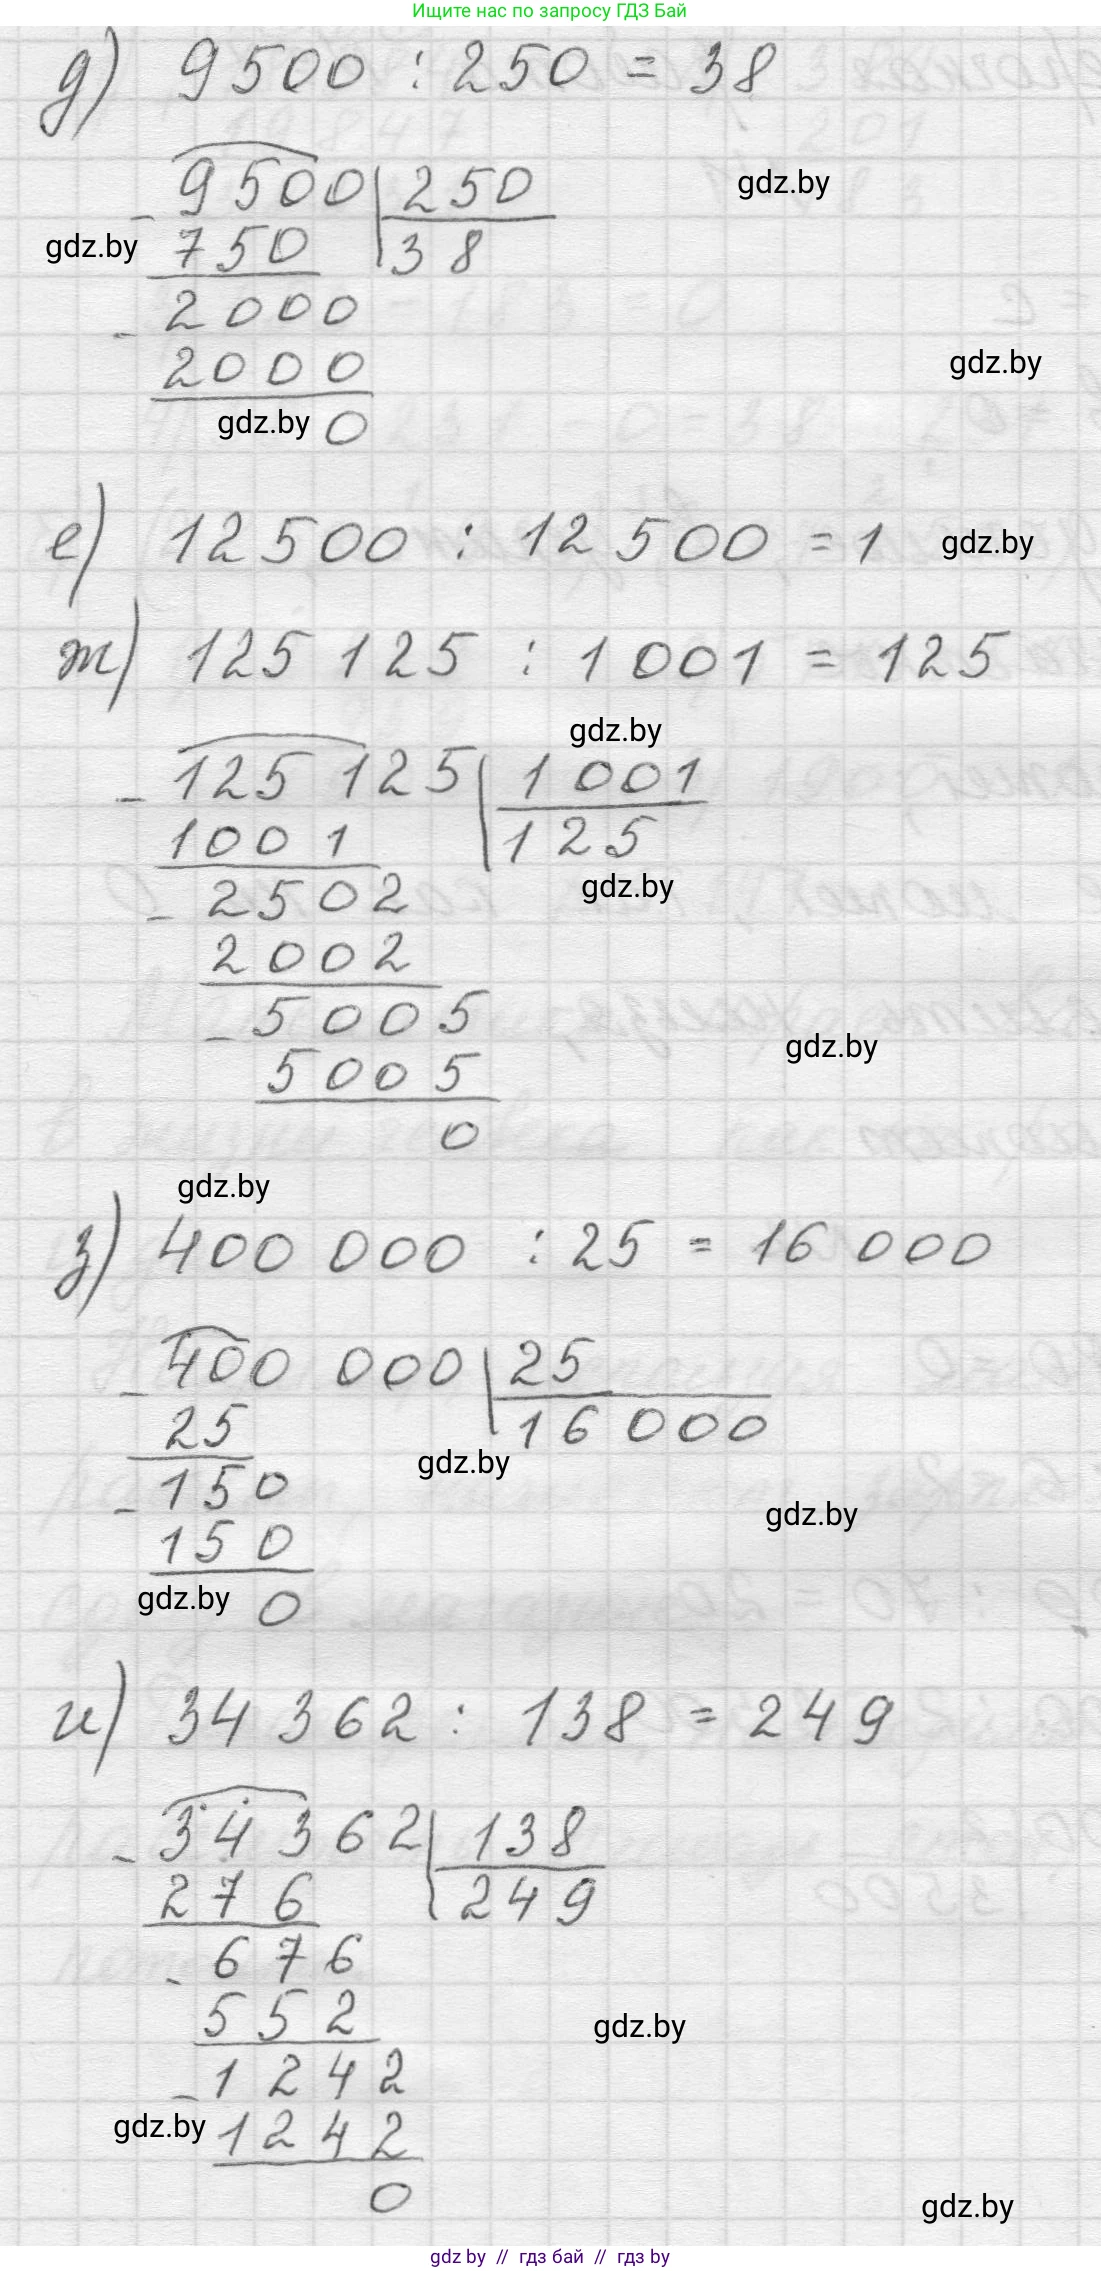 Ищите нас по запросу ГДЗ Бай
д) 9500 : 250 = 38
9500 250
gdz.by
- 750 38
gdz.by
- 2000
2000
gdz.by
0
gdz.by
е) 12500 : 12500 = 1
gdz.by
ж) 125 125 : 1001 = 125
gdz.by
- 125 125 1001
1001 125
gdz.by
- 2502
2002
- 5005
gdz.by
5005
0
gdz.by
з) 400 000 : 25 = 16 000
- 400 000 25
25 16 000
gdz.by
- 150
gdz.by
150
gdz.by
0
и) 34 362 : 138 = 249
- 34 362 138
276 249
- 676
552
gdz.by
- 1242
gdz.by
1242
0
gdz.by
gdz by // гдз бай // гдз by